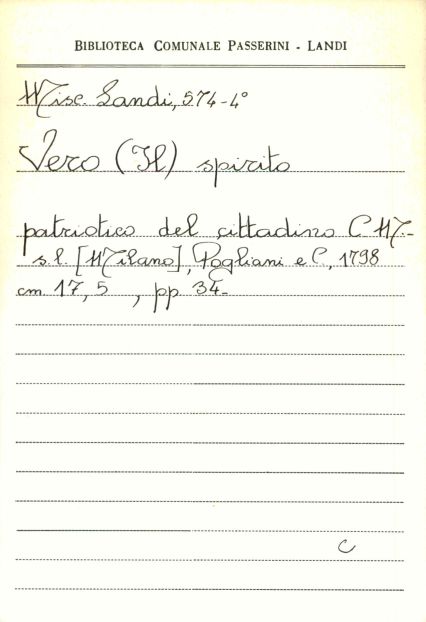 BIBLIOTECA COMUNALE PASSERINI - LANDI
Misc. Landi, 574-4°
Vero (Il) spirito
patriotico del cittadino C. M.-
s.l. [Milano], Pogliani e C., 1798
cm. 17,5 , pp. 34-
C